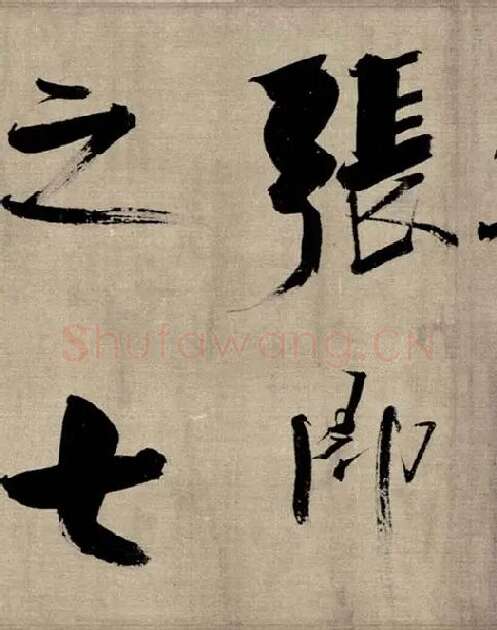 張即
之七
Shufawang.CN